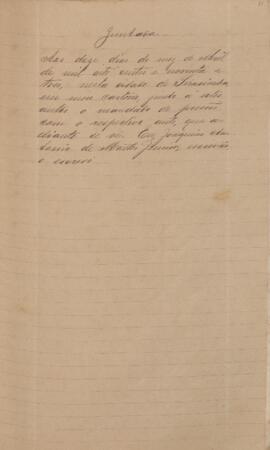 Juntada
Aos doze dias do mez de Abril
de mil oito centos e noventa e
tres, nesta cidade de Piracicaba,
em meu cartorio, junto a estes
autos o mandado de prisão
com o respectivo auto, que a-
diante se vê. Eu, Joaquim
de Mattos, escrivão,
o escrevi